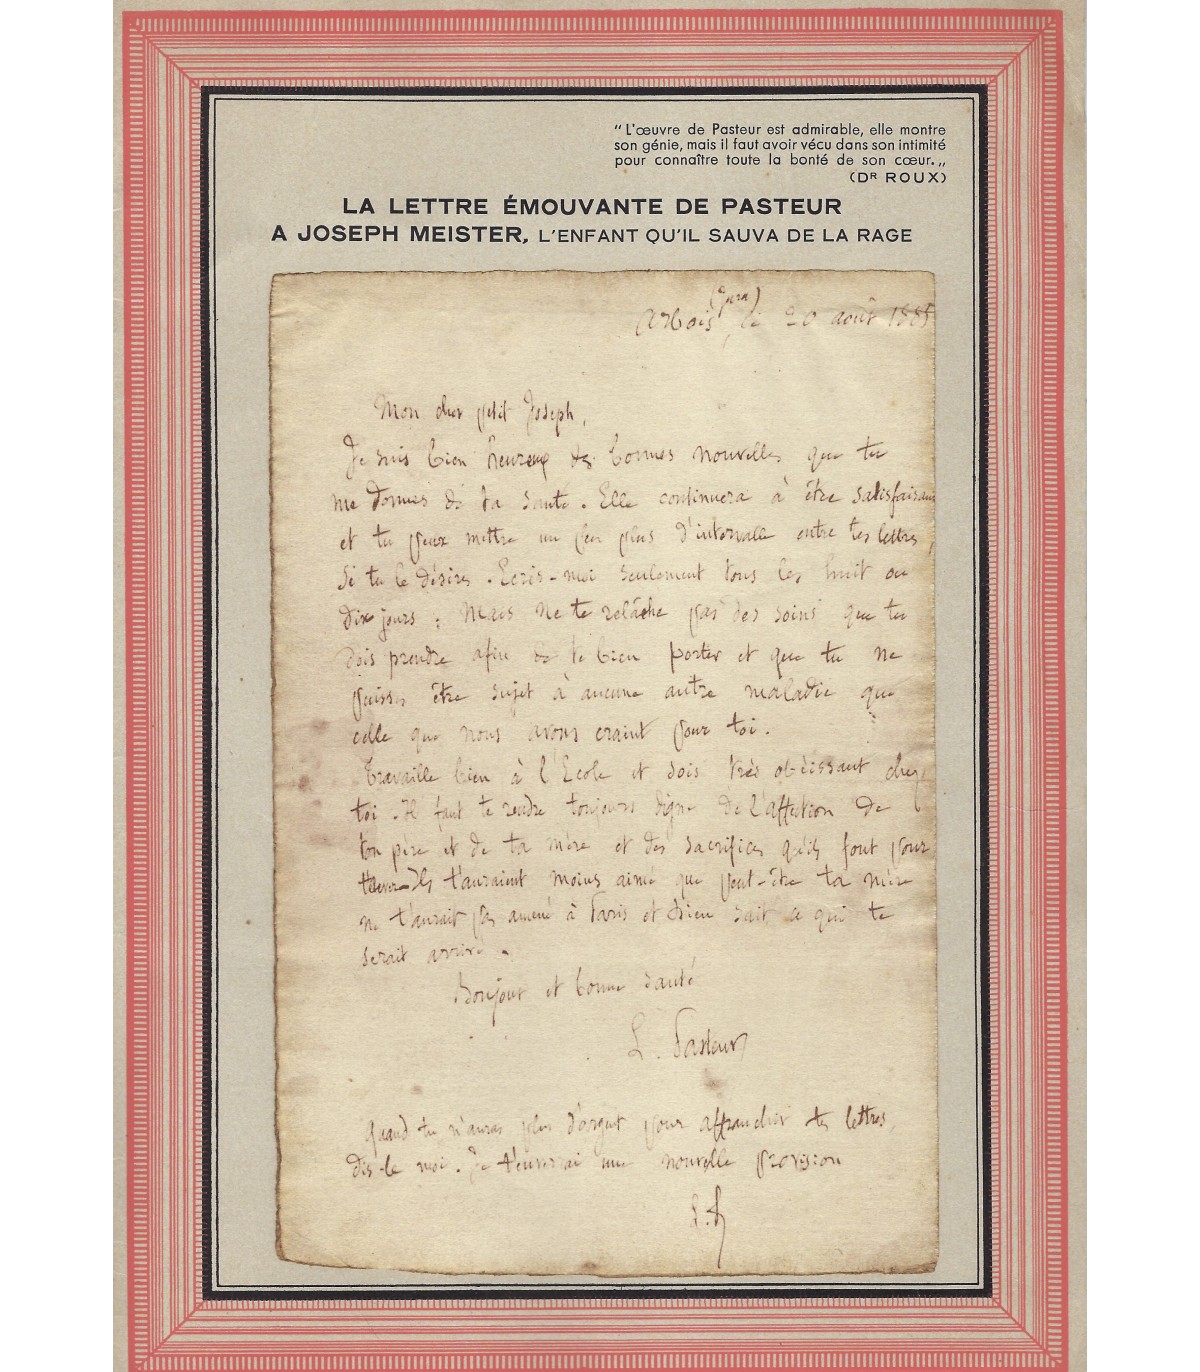 “L'œuvre de Pasteur est admirable, elle montre
son génie, mais il faut avoir vécu dans son intimité
pour connaître toute la bonté de son cœur.„
(DR ROUX)
LA LETTRE ÉMOUVANTE DE PASTEUR
A JOSEPH MEISTER, L'ENFANT QU'IL SAUVA DE LA RAGE
(Jura)
Arbois, le 20 août 1885
Mon cher petit Joseph,
Je suis bien heureux des bonnes nouvelles que tu
me donnes de ta santé. Elle continuera à être satisfaisante
et tu peux mettre un peu plus d'intervalle entre tes lettres,
si tu le désires. Ecris-moi seulement tous les huit ou
dix jours; mais ne te relâche pas des soins que tu
dois prendre afin de te bien porter et que tu ne
puisses être sujet à aucune autre maladie que
celle que nous avons craint pour toi.
Travaille bien à l'Ecole et sois très obéissant chez
toi. Il faut te rendre toujours digne de l'affection de
ton père et de ta mère et des sacrifices qu'ils font pour
t'élever. Ils t'auraient moins aimé que peut-être ta mère
ne t'aurait pas amené à Paris et Dieu sait ce qui te
serait arrivé.
Bonjour et bonne santé
L. Pasteur
Quand tu n'auras plus d'argent pour affranchir tes lettres,
dis-le moi. Je t'enverrai une nouvelle provision
L. P.